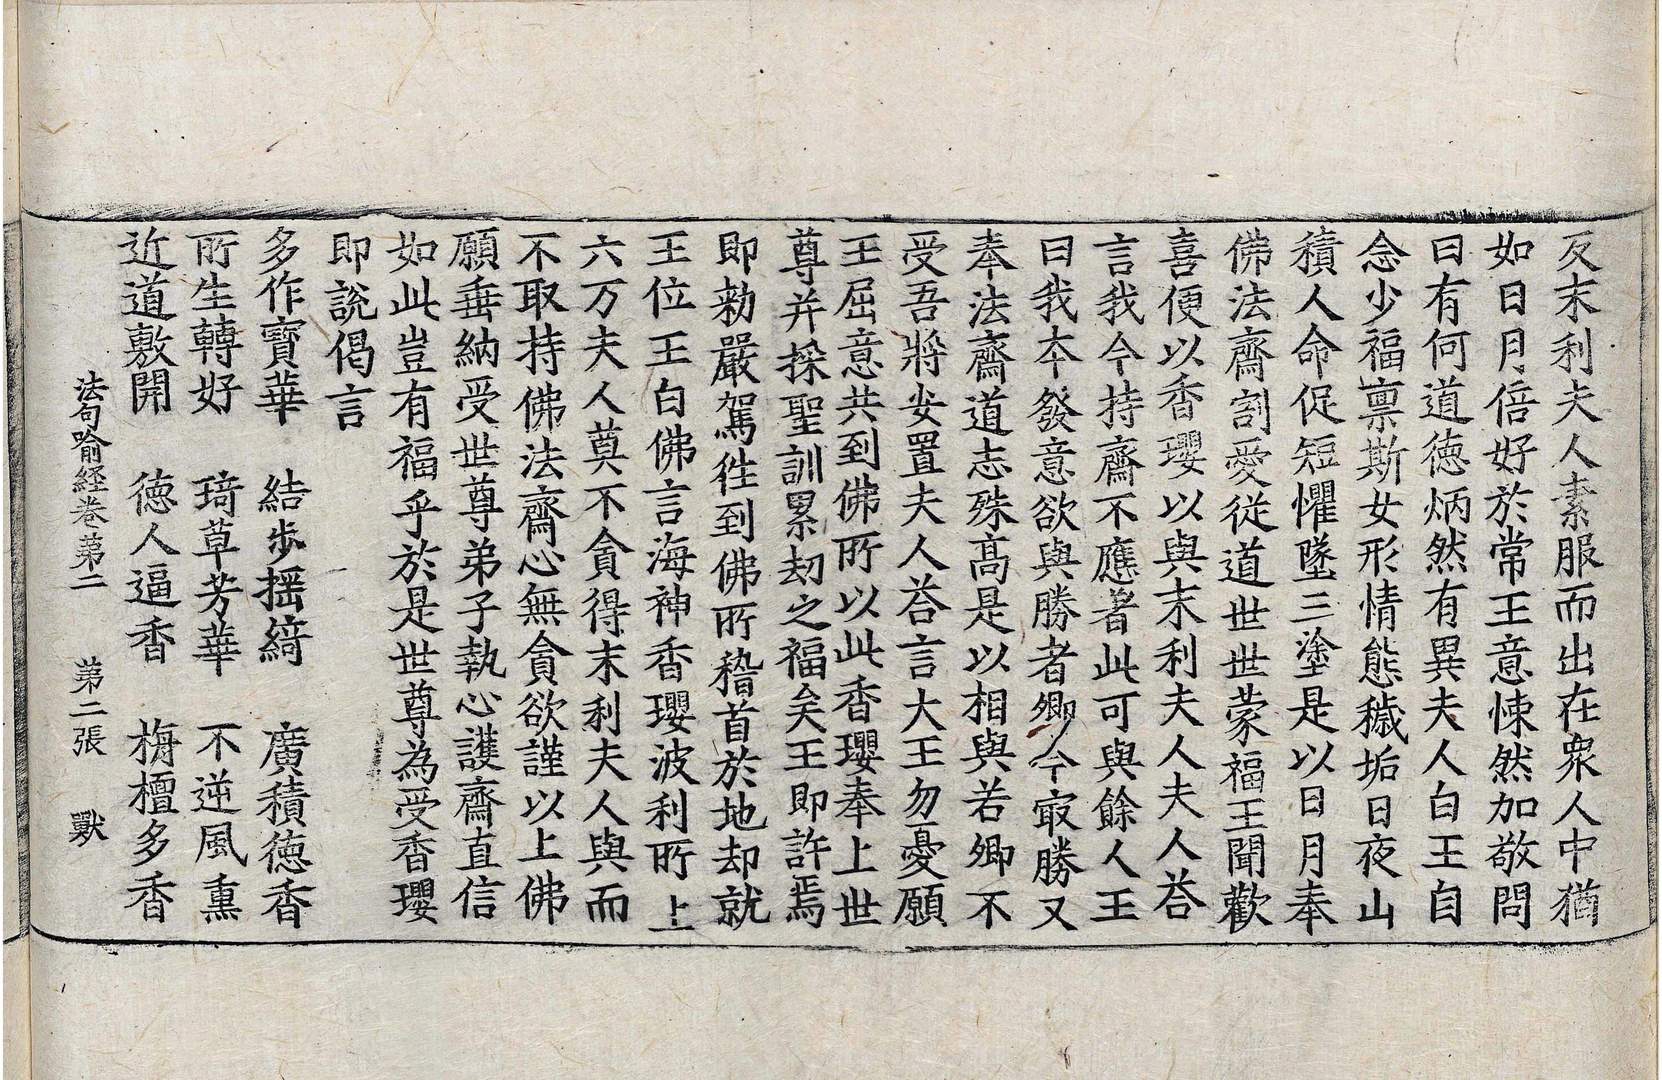 反末利夫人素服而出在衆人中猶
如日月倍好於常王意悚然加敬問
曰有何道徳炳然有異夫人白王自
念少福禀斯女形情態穢垢日夜山
積人命促短懼墜三塗是以日月奉
佛法齋割愛從道世世蒙福王聞歡
喜便以香瓔以與末利夫人夫人荅
言我今持齋不應著此可與餘人王
曰我本發意欲與勝者卿今㝡勝又
奉法齋道志殊高是以相與若卿不
受吾將安置夫人荅言大王勿憂願
王屈意共到佛所以此香瓔奉上世
尊并採聖訓累劫之福矣王即許焉
即勑嚴駕徃到佛所稽首於地却就
王位王白佛言海神香瓔波利所上
六万夫人莫不貪得末利夫人與而
不取持佛法齋心無貪欲謹以上佛
願垂納受世尊弟子執心護齋直信
如此豈有福乎於是世尊為受香瓔
即說偈言
多作寳華　結步揺綺　廣積徳香
所生轉好　琦草芳華　不逆風熏
近道敷開　徳人逼香　栴檀多香
法句喻經卷苐二　苐二張　獸